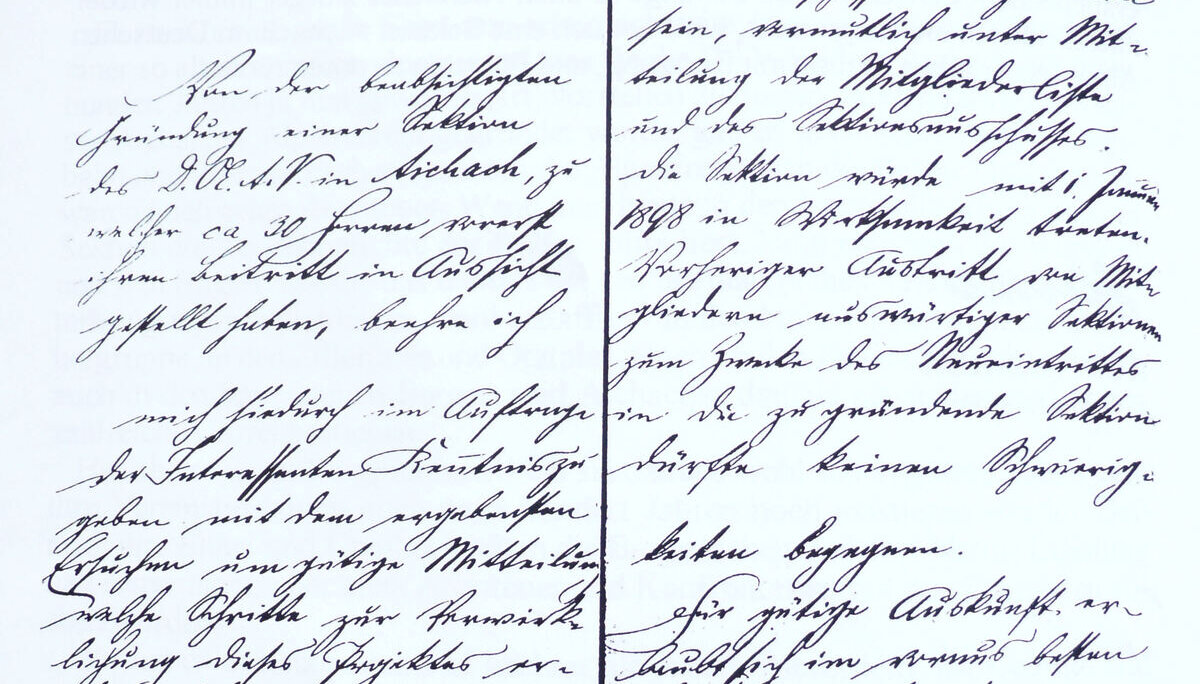 Von der beabsichtigten
Gründung einer Sektion
des D. Ö. A. V. in Aichach, zu
welcher ca 30 Herren vorerst
ihren Beitritt in Aussicht
gestellt haben, beehre ich
mich hiedurch im Auftrage
der Interessenten Kenntnis zu
geben mit dem ergebensten
Ersuchen um gütige Mitteilung
welche Schritte zur Verwirk-
lichung dieses Projektes er-
sein, vermutlich unter Mit-
teilung der Mitgliederliste
und des Sektionsausschusses.
Die Sektion würde mit 1. Januar
1898 in Wirksamkeit treten.
Vorheriger Austritt von Mit-
gliedern auswärtiger Sektionen
zum Zwecke des Neueintrittes
in die zu gründende Sektion
dürfte keinen Schwierig-
keiten begegnen.
Für gütige Auskunft er-
laubt sich im voraus besten